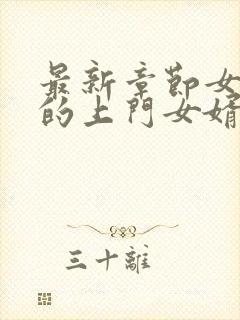 最新章節女
的上門女婿
三十離